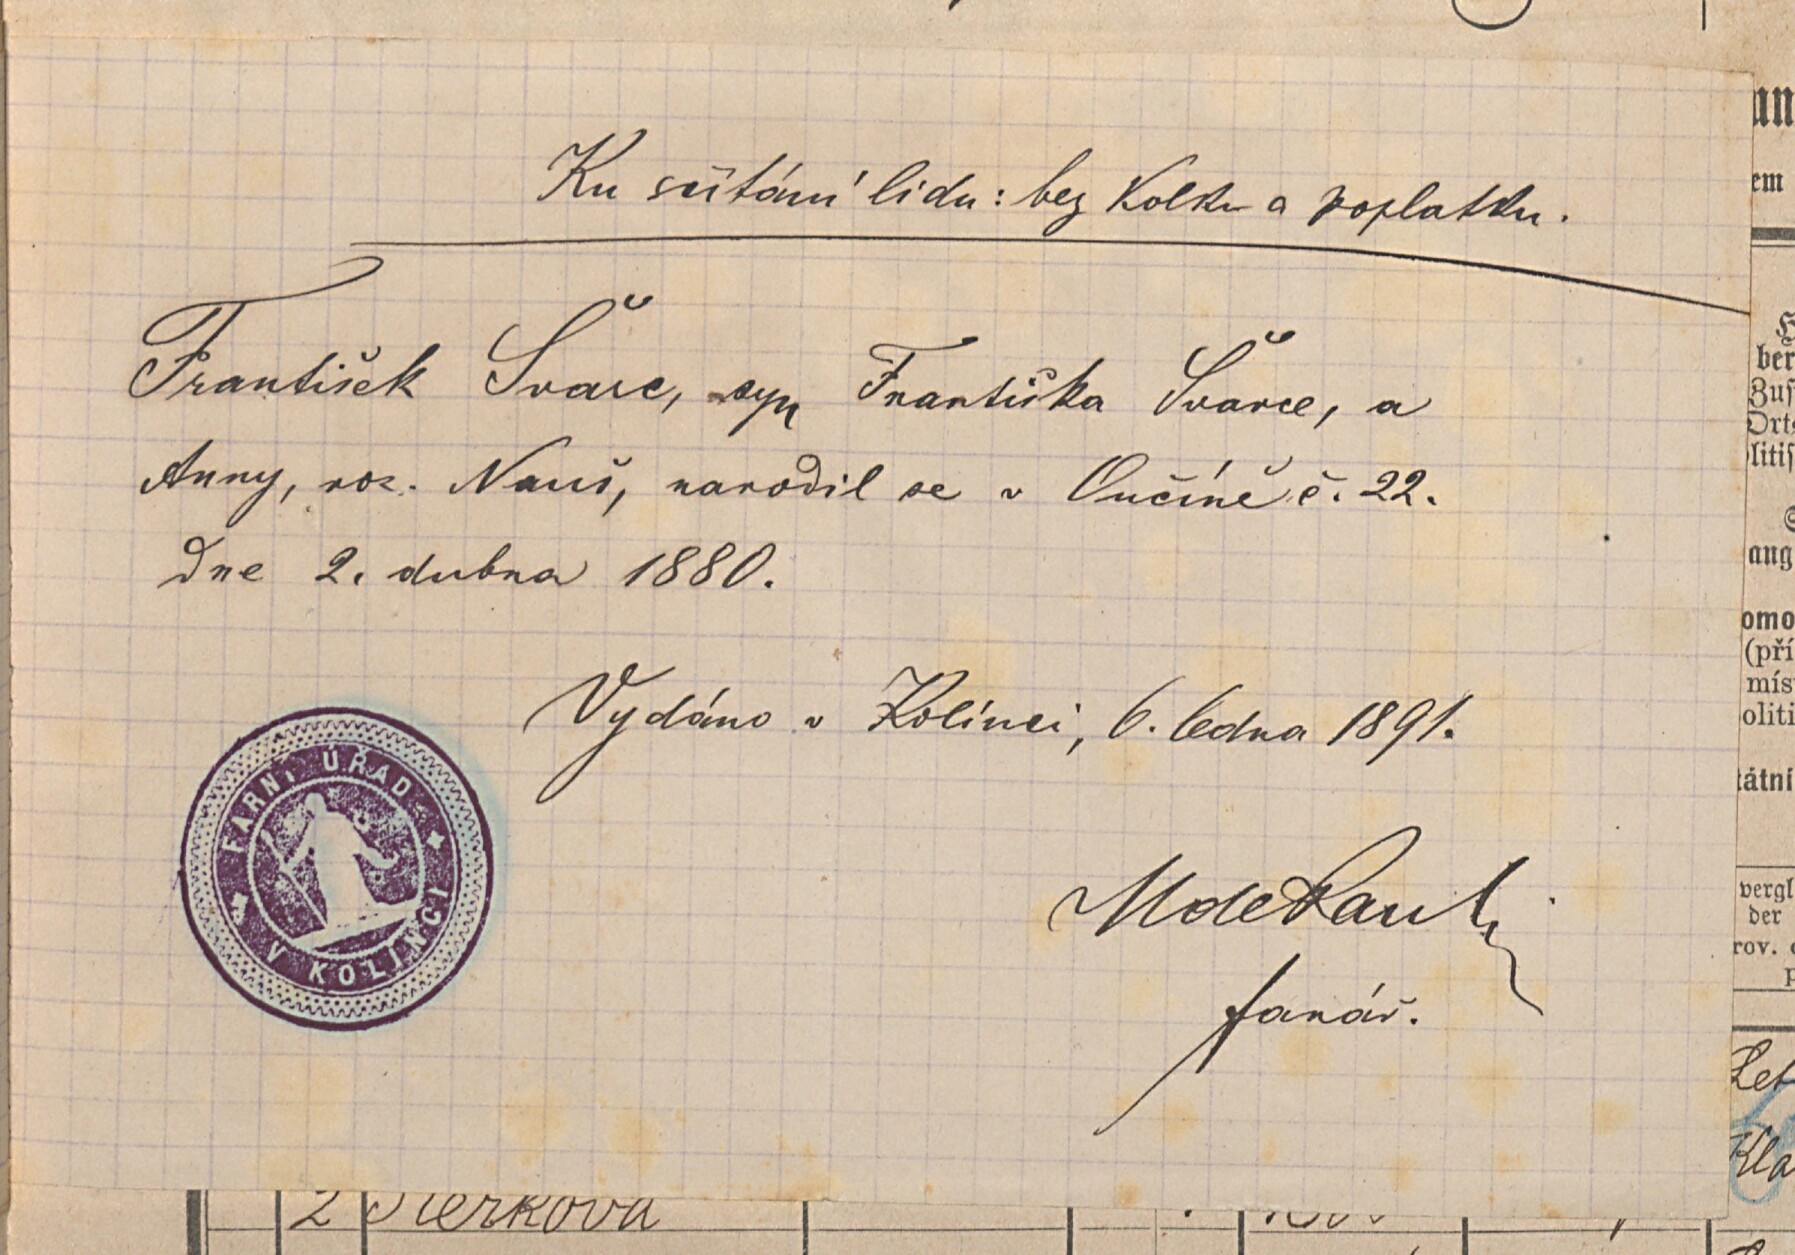 Ku sčítání lidu: bez kolku a poplatku.
František Švarc, syn Františka Švarce, a
Anny, roz. Nauš, narodil se v Ončíně č. 22.
dne 2. dubna 1880.
Vydáno v Kolinci, 6. ledna 1891.
FARNÍ ÚŘAD
V KOLINCI
farář.
un
em
ber
Zus
Orts
litis
ang
omo
(pří
mís
oliti
tátní
vergl
der
rov.
Let
Kla
2